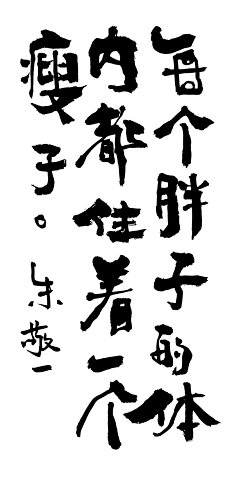 每个胖子的体
内都住着一个
瘦子。
朱敬一